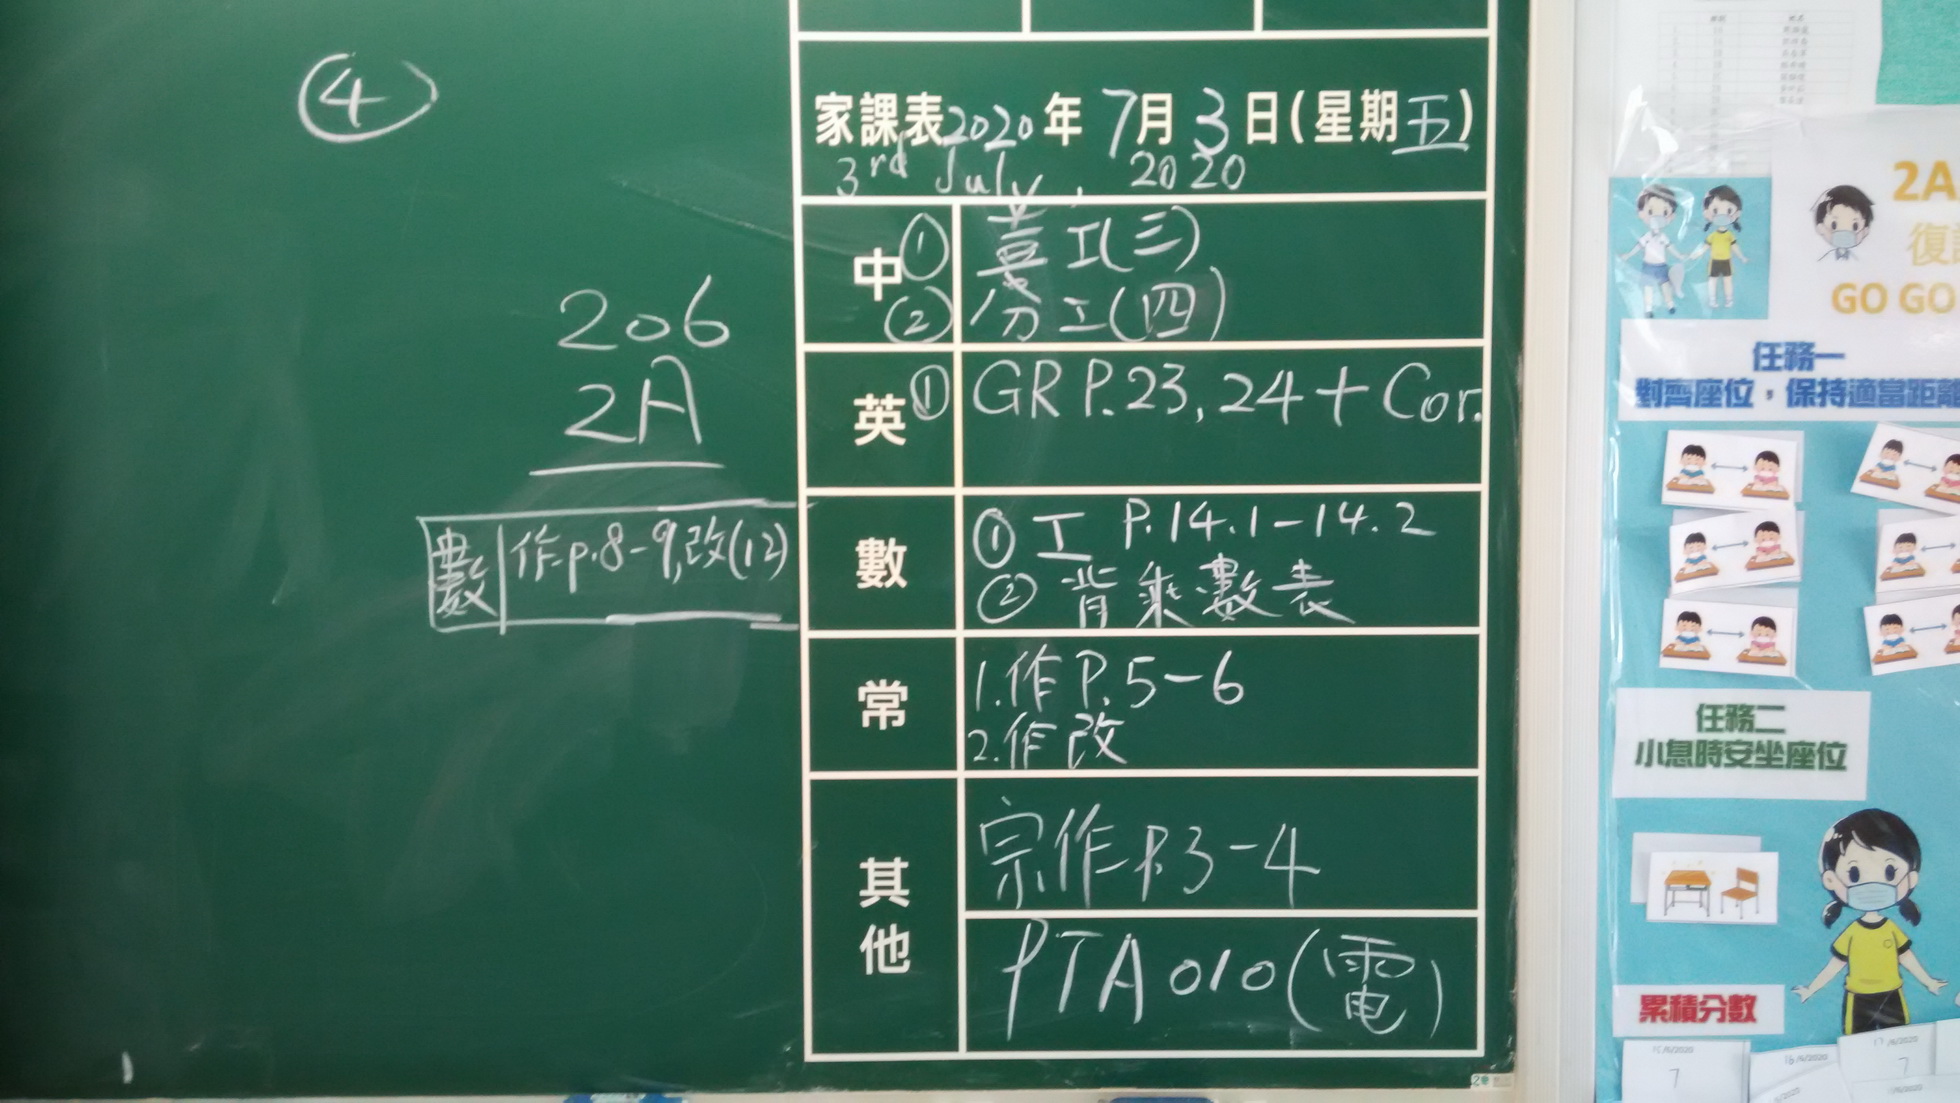 ④
206
2A
數 作p.8-9,改(12)
家課表2020年7月3日(星期五)
3rd July, 2020
中
① 工(三)
② 分工(四)
英 ① GR P.23, 24 + Cor.
數
① 工 P.14.1-14.2
② 背乘數表
常
1.作P.5-6
2.作改
其他
宗作P.3-4
PTA 010(電)
2A
GO GO
任務一
對齊座位,保持適當距離
任務二
小息時安坐座位
累積分數
7
7